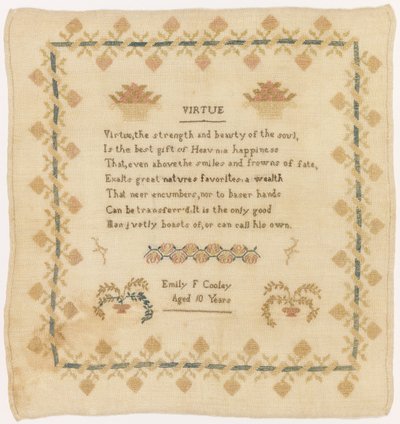 VIRTUE
Virtue, the strength and beauty of the soul,
Is the best gift of Heavnia happiness
That, even above the smiles and frowns of fate,
Exalts greet natures favorites. a wealth
That neer encumbers, nor to baser hands
Can be transferr'd. It is the only good
Man justly boasts of, or can call his own.
Emily F Cooley
Aged 10 Years